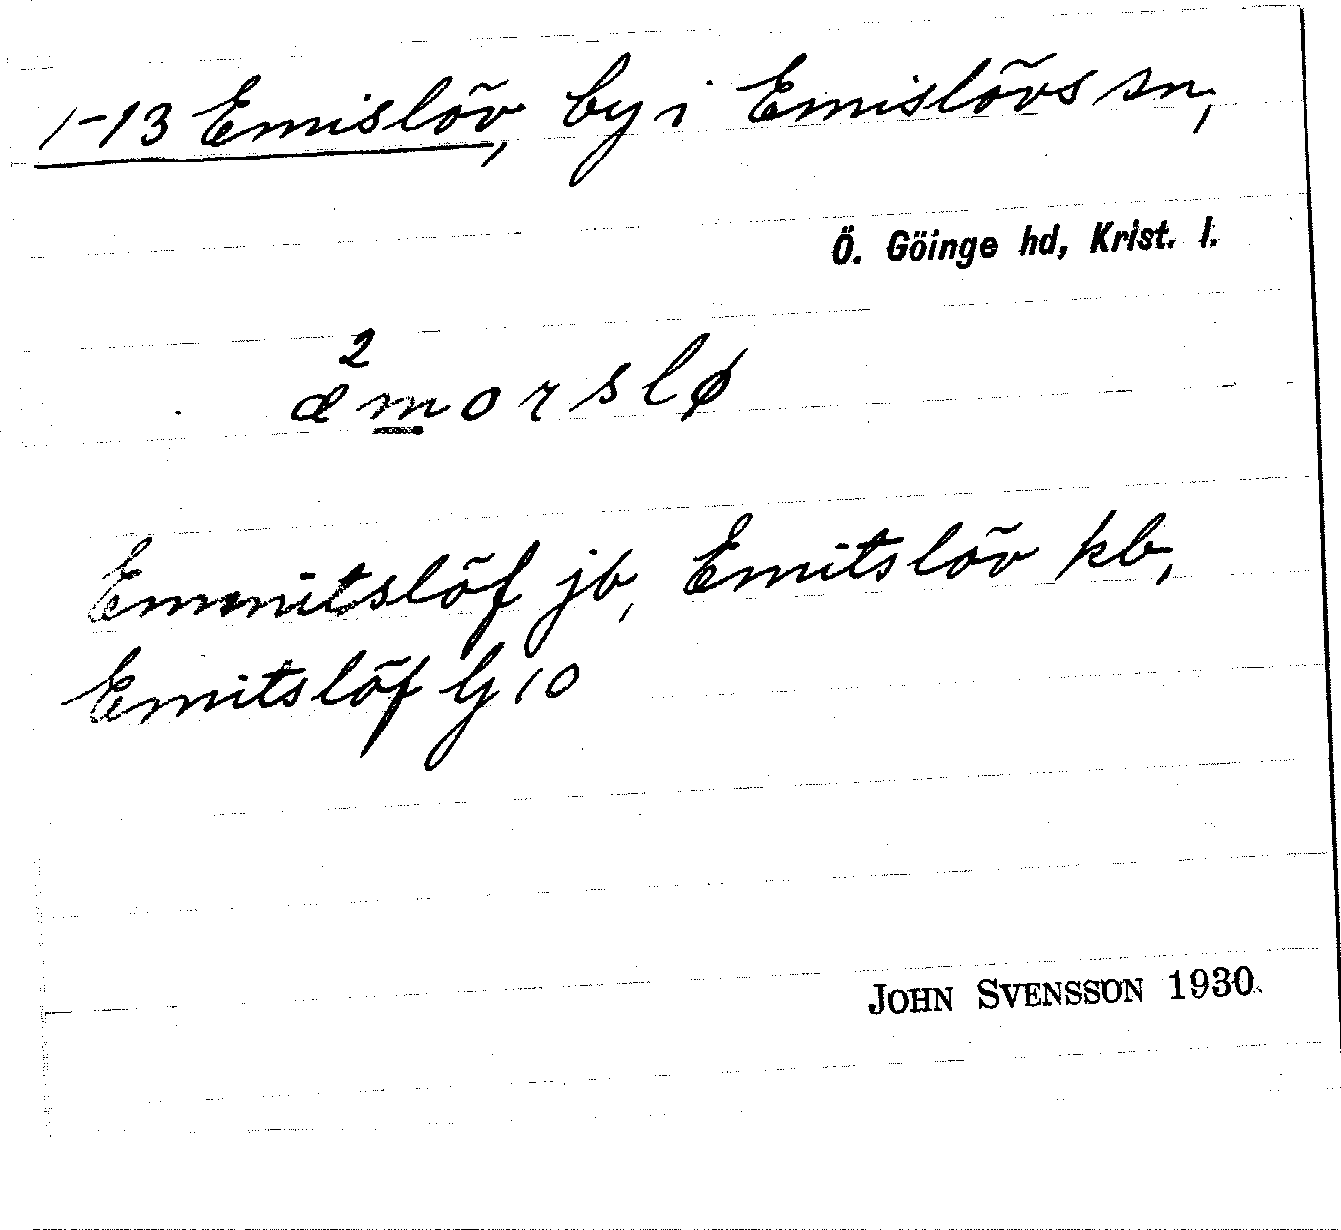 1-13 Emislöv, by i Emislövs sn,
Ö. Göinge hd, Krist. l.
2
æmorslø
Emmitslöf jb, Emitslöv kb,
Emitslöf G 10
JOHN SVENSSON 1930.